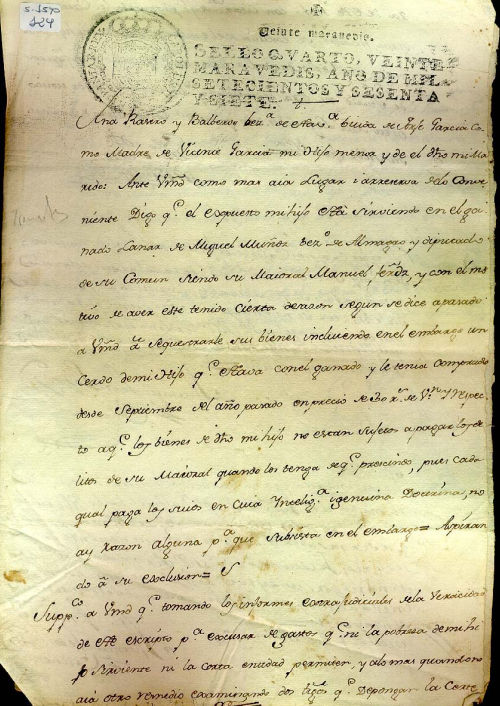 S-1570
124
Veinte maravedis.
SELLO QVARTO, VEINTE
MARAVEDIS, AÑO DE MIL
SETECIENTOS Y SESENTA
Y SIETE.
Ana Rasero y Balberos vez.ª de esta v.ª biuda de Garcia Co
mo Madre de Vicente Garcia mi Hijo menor y de el dho mi Ma
rido: Ante Vmd como mas aia Lugar i a rreserva de lo Conve
niente Digo q.e el expuesto mi hijo Está Sirviendo en el ga
nado Lanar de Miguel Muñoz vez.o de Almagro y diputado
de su Comun siendo su Maioral Manuel y con el mo
tivo de aver este tenido cierta desazon segun se dice a pasado
a Vmd a sequestrarle sus bienes incluiendo en el embargo un
Cerdo de mi Hijo q.e estava con el ganado y le tenia Comprado
desde Septiembre del año pasado en precio de r.s de V.n Y Respec
to a q.e los bienes de dho mi hijo no estan sujetos a pagar los de
litos de su Maioral quando los tenga de q.e prescindo, pues cada
qual paga los suios en Cuia Yntelig.ª i genuina Doctrina, no
ay Razon alguna p.ª que subsista en el embargo= Aspiran
do a su exclusion=
Supp.co a Vmd q.e tomando los informes extrajudiciales de la Veracidad
de este escripto p.ª excusar de gastos q.e ni la pobreza de mi hi
jo sirviente ni la corta entidad permiten, y a lo mas quando no
aia otro remedio examinando dos tigos q.e depongan la Certe